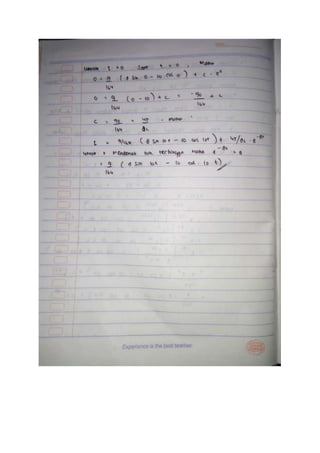 karena I = 0 saat t = 0, maka
0 = 9/164 (8 sin 0 - 10 cos 0) + C . e⁰
0 = 9/164 (0 - 10) + C = -90/164 + C
C = 90/164 = 45/82 . maka
I = 9/164 (8 sin 10t - 10 cos 10t) + 45/82 . e
t mendekati tak terhingga maka e = 0
= 9/164 (8 sin 10t - 10 cos 10 t)
Experience is the best teacher